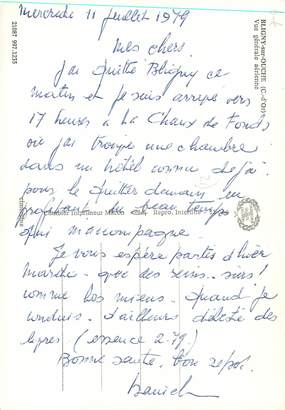 Mercredi 11 Juillet 1979
Mes chers.
J'ai quitté Bligny ce
matin et je suis arrivé vers
17 heures à La Chaux de Fonds
où j'ai trouvé une chambre
dans un hôtel connu déjà
pour le quitter demain en
profitant du beau temps
qui m'accompagne.
Je vous espère partis d'hier
Mardi - avec des reins
comme les miens. Quand je
conduis. d'ailleurs délesté des
(essence 2.79)
Bonne santé. bon repos.
BLIGNY-sur-OUCHE (C.-d'Or)
Vue générale aérienne
21087 997 1235
Imprimeur Mâcon
Repro. Interdite